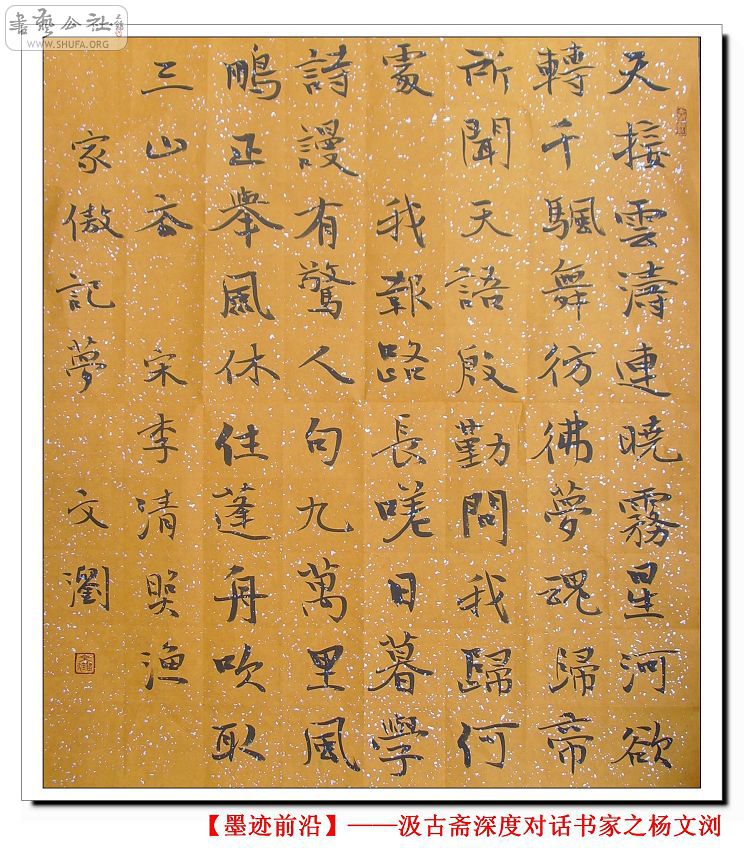 書藝公社
WWW.SHUFA.ORG
天接雲濤連曉霧星河欲
轉千颿舞彷彿夢魂歸帝
所聞天語殷勤問我歸何
處 我報路長嗟日暮學
詩謾有驚人句九萬里風
鵬正舉風休住蓬舟吹取
三山去 宋李清照漁
家傲記夢 文瀏
【墨迹前沿】——汲古斋深度对话书家之杨文浏